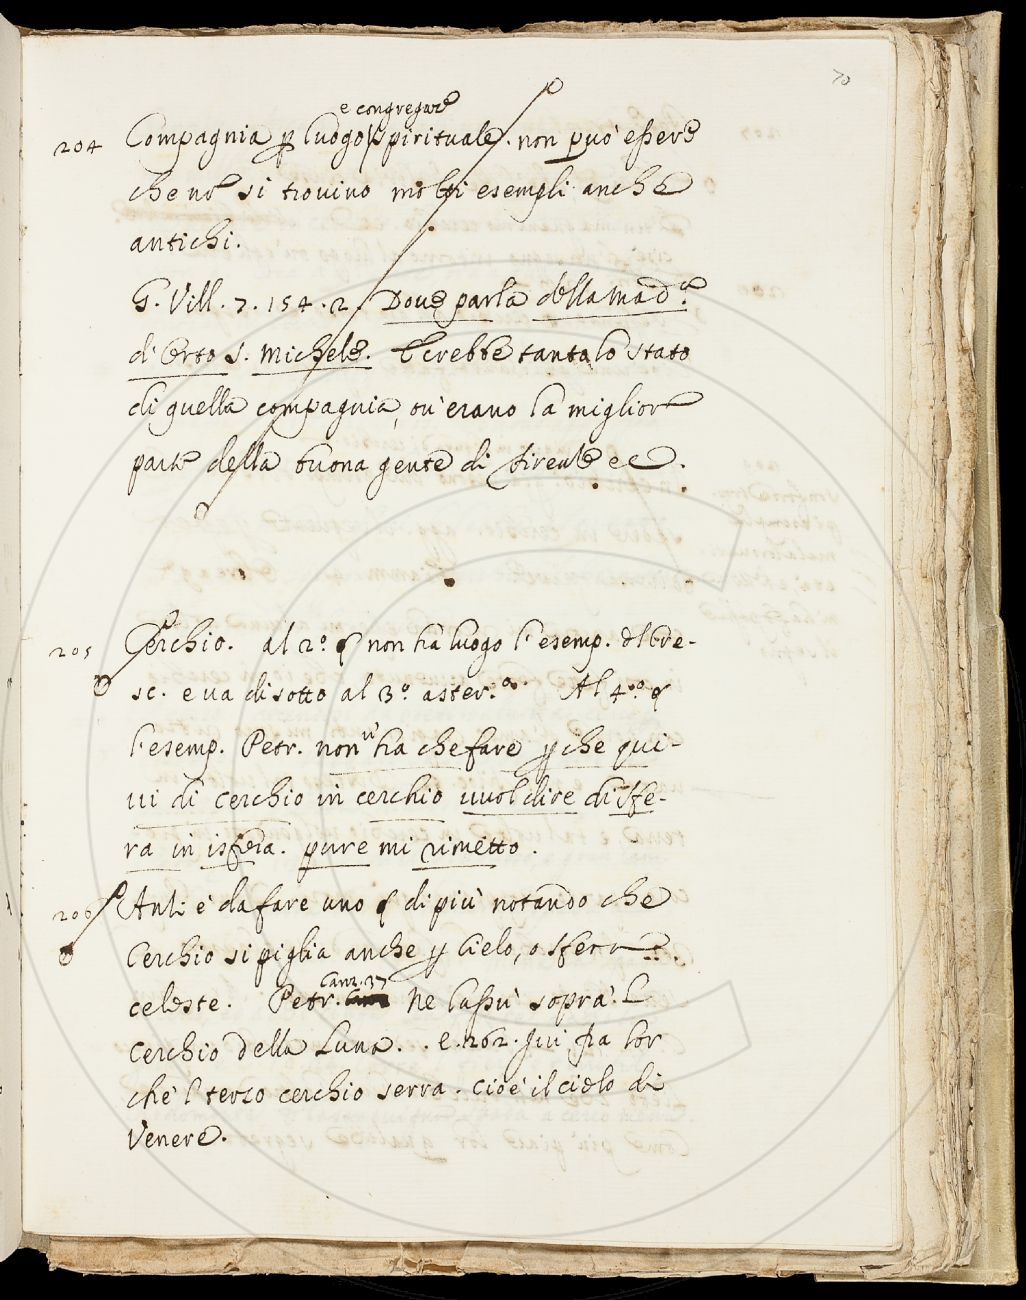 70
e congregare
204 Compagnia p luogo spirituale. non può essere
che nō si trovino molti esempli anche
antichi.
G. Vill. 7. 154. 2. Dove parla della Mad.ª
d'Orto S. Michele. E crebbe tanto lo stato
di quella compagnia, ov'erano la miglior
parte della buona gente di Firenze ec.
205 Cerchio. al 2º. § non ha luogo l'esemp. del Cre-
sc. e va di sotto al 3º. aster.º. Al 4º. §
l'esemp. Petr. non v'ha che fare pche qui-
vi di cerchio in cerchio vuol dire di sfe-
ra in isfera. pure mi rimetto.
206 Anzi è da fare uno § di più notando che
Cerchio si piglia anche p Cielo, o sfera
celeste. Petr. Canz. 37 Ne lassù sopra 'l
cerchio della Luna. e. 262. Ivi fra lor
che 'l terzo cerchio serra. cioè il cielo di
Venere.